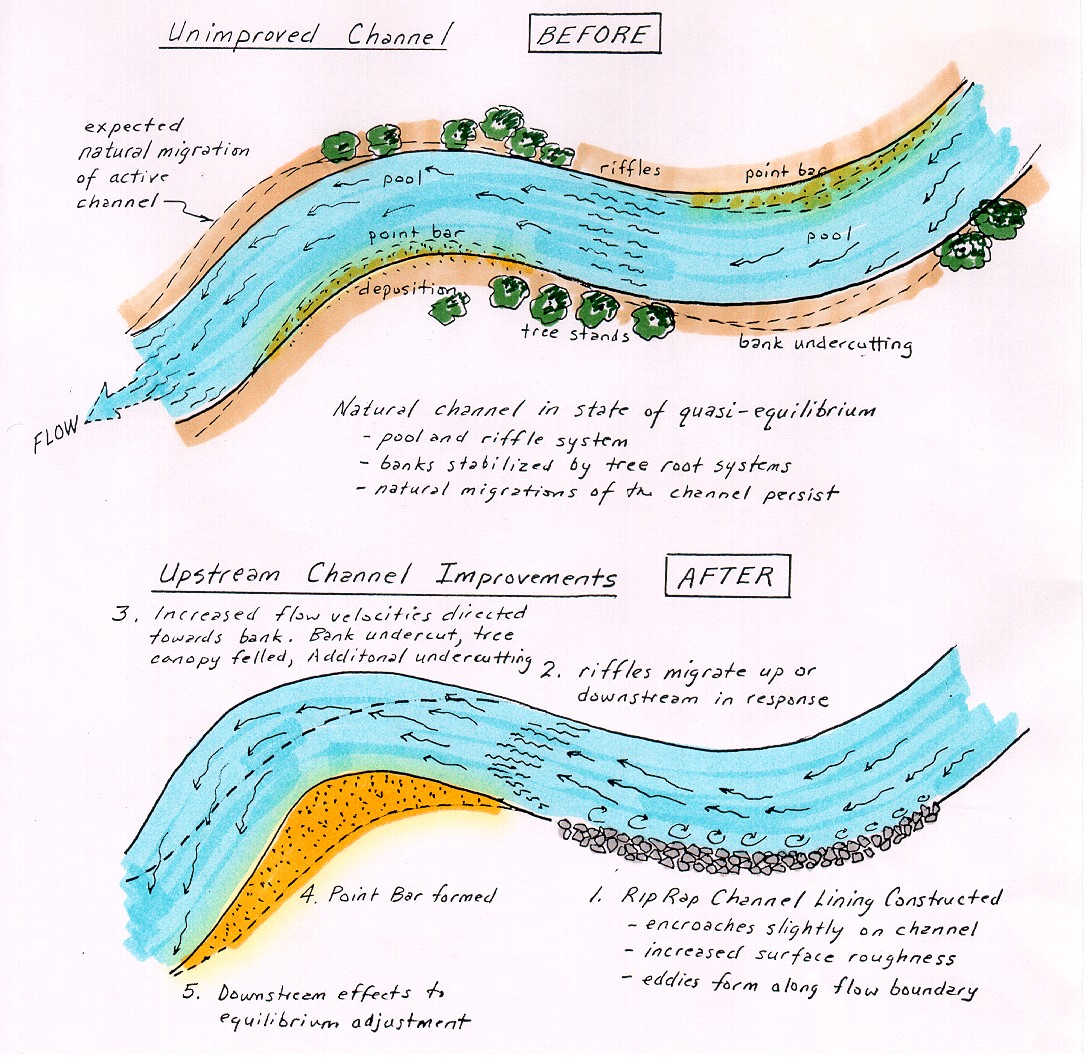 Unimproved Channel
BEFORE
expected
natural migration
of active
channel
riffles
point bar
pool
point bar
pool
deposition
tree stands
bank undercutting
FLOW
Natural channel in state of quasi-equilibrium
- pool and riffle system
- banks stabilized by tree root systems
- natural migrations of the channel persist
Upstream Channel Improvements
AFTER
3. Increased flow velocities directed
towards bank. Bank undercut, tree
canopy felled, Additonal undercutting
2. riffles migrate up or
downstream in response
4. Point Bar formed
1. Rip Rap Channel Lining Constructed
- encroaches slightly on channel
- increased surface roughness
- eddies form along flow boundary
5. Downstream effects to
equilibrium adjustment